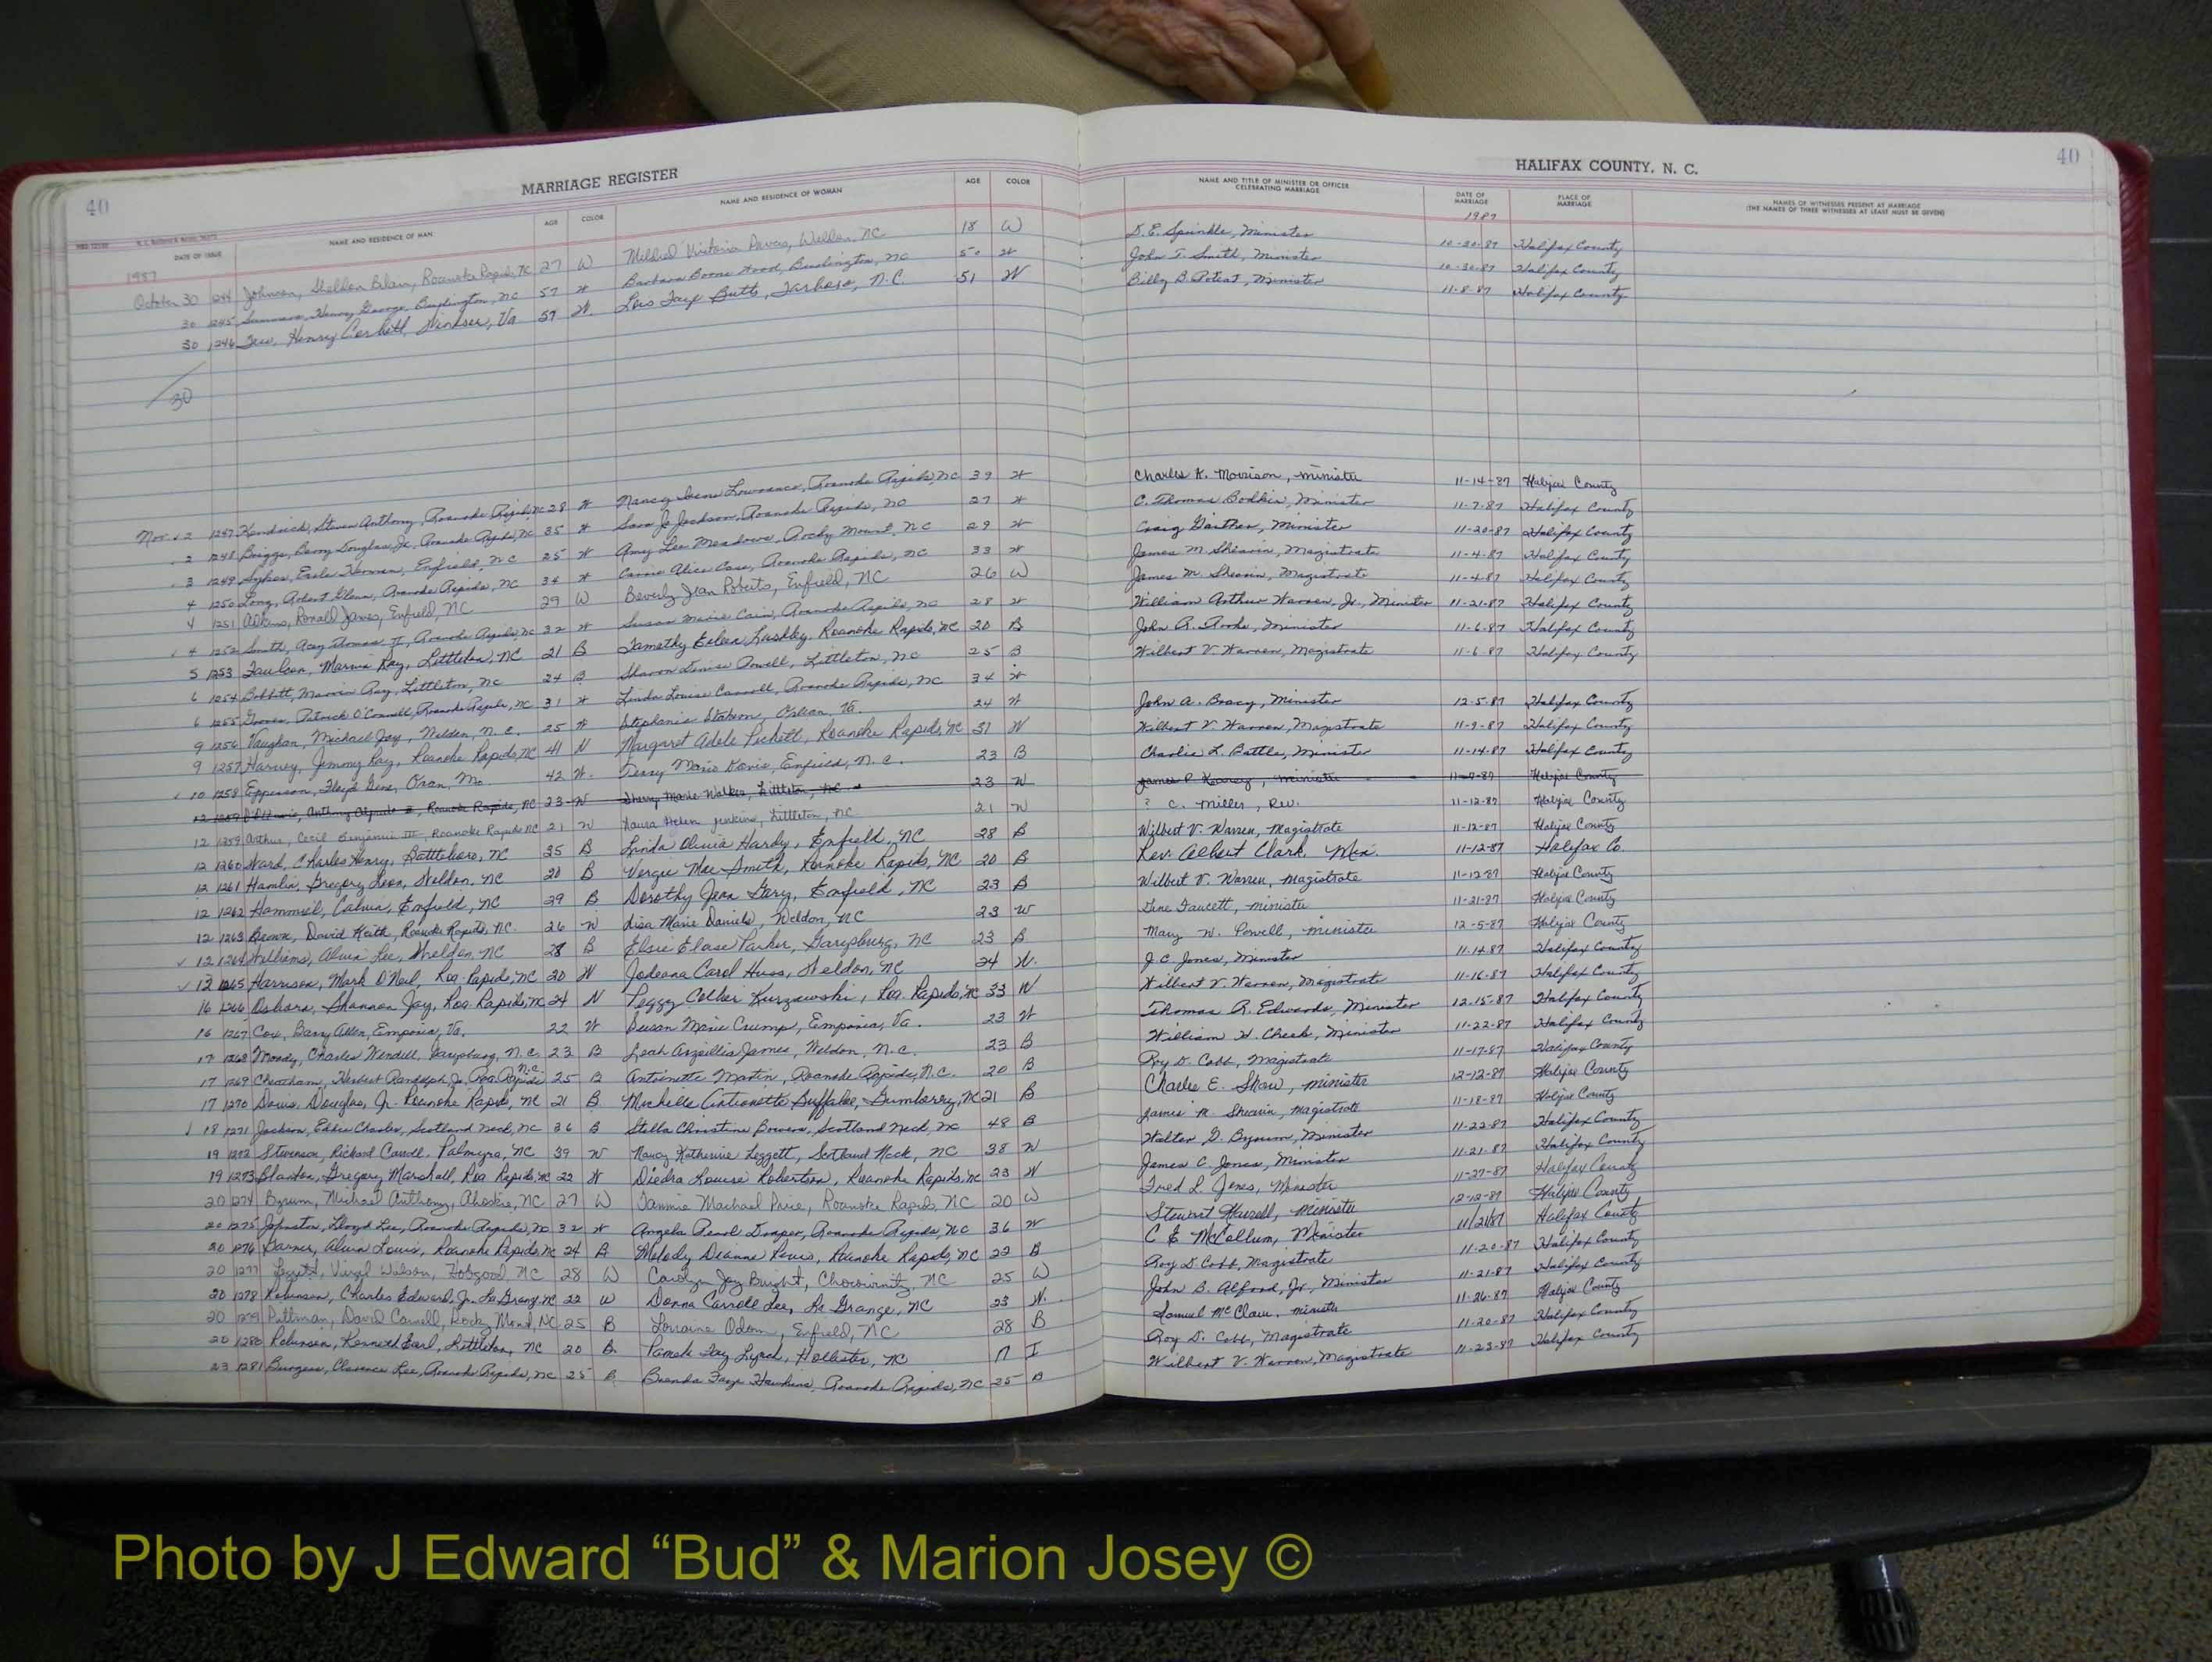 40 MARRIAGE REGISTER
DATE OF ISSUE NAME AND RESIDENCE OF MAN AGE COLOR NAME AND RESIDENCE OF WOMAN AGE COLOR
1987
October 30 1244 Johnson, Sheldon Roanoke Rapids, NC 27 W Mildred Victoria Weldon, NC 18 W
30 1245 Henry George, Burlington, NC 57 W Barbara Boone Burlington, NC 50 W
30 1246 Tew, Henry Windsor, Va 57 W. Lois Faye Butts, Tarboro, N.C. 51 W
30
Nov. 2 1247 Kendrick, Steven Anthony, Roanoke Rapids, NC 28 W Nancy Irene Lowrance, Roanoke Rapids, NC 39 W
2 1248 Briggs, Barry Douglas, Jr., Roanoke Rapids, NC 35 W Sara Jo Jackson, Roanoke Rapids, NC 27 W
3 1249 Sykes, Earle Enfield, NC 25 W Amy Lee Meadows, Rocky Mount, NC 29 W
4 1250 Long, Robert Glenn, Roanoke Rapids, NC 34 W Carrie Alice Case, Roanoke Rapids, NC 33 W
4 1251 Adkins, Ronald James, Enfield, NC 29 W Beverly Jean Roberts, Enfield, NC 26 W
4 1252 Smith, Thomas II, Roanoke Rapids, NC 32 W Susan Marie Cain, Roanoke Rapids, NC 28 W
5 1253 Faulcon, Marvin Ray, Littleton, NC 21 B Roanoke Rapids, NC 20 B
6 1254 Bobbitt, Marvin Ray, Littleton, NC 24 B Sharon Denise Powell, Littleton, NC 25 B
6 1255 Patrick O'Connell, Roanoke Rapids, NC 31 W Linda Louise Carroll, Roanoke Rapids, NC 34 W
9 1256 Vaughan, Michael Jay, Weldon, N.C. 25 W Stephanie Va. 24 W
9 1257 Harvey, Jimmy Ray, Roanoke Rapids, NC 41 W Margaret Adele Pickett, Roanoke Rapids, NC 31 W
10 1258 Epperson, Floyd Gene, Oran, Mo. 42 W. Terry Marie Davis, Enfield, N.C. 23 B
12 1259 Roanoke Rapids, NC 23 W Sherry Marie Walker, Littleton, NC 23 W
12 1259 Arthur, Cecil Benjamin III, Roanoke Rapids NC 21 W Laura Helen Jenkins, Littleton, NC 21 W
12 1260 Ward, Charles Henry, Battleboro, NC 35 B Linda Olivia Hardy, Enfield, NC 28 B
12 1261 Hamlin, Gregory Leon, Weldon, NC 20 B Vergie Mae Smith, Roanoke Rapids, NC 20 B
12 1262 Hammiel, Calvin, Enfield, NC 29 B Dorothy Jean Gery, Enfield, NC 23 B
12 1263 Brown, David Keith, Roanoke Rapids, NC. 26 W Lisa Marie Daniels, Weldon, NC 23 W
12 1264 Williams, Alvin Lee, Weldon, NC 28 B Elsie Elase Parker, Garysburg, NC 23 B
13 1265 Harrison, Mark O'Neil, Roa. Rapids, NC 20 W Jodeana Carol Huss, Weldon, NC 24 W.
16 1266 Shannon Jay, Roa. Rapids, NC 24 W Peggy Collier Kurzawski, Roa. Rapids, NC 33 W
16 1267 Cox, Barry Allen, Emporia, Va. 22 W Susan Marie Crump, Emporia, Va. 23 W
17 1268 Moody, Charles Wendell, Garysburg, N.C. 23 B Leah James, Weldon, N.C. 23 B
17 1269 Cheatham, Herbert Randolph, Jr., Roa. Rapids N.C. 25 B Antoinette Martin, Roanoke Rapids, N.C. 20 B
17 1270 Davis, Douglas, Jr. Roanoke Rapids, NC 21 B Michelle Buffaloe, Gumberry, NC 21 B
18 1271 Jackson, Eddie Charles, Scotland Neck, NC 36 B Stella Christine Bowers, Scotland Neck, NC 48 B
19 1272 Stevenson, Richard Carroll, Palmyra, NC 39 W Nancy Katherine Leggett, Scotland Neck, NC 38 W
19 1273 Gregory Marshall, Roa Rapids, NC 22 W Diedra Louise Robertson, Roanoke Rapids, NC 23 W
20 1274 Byrum, Michael Anthony, Ahoskie, NC 27 W Tammie Price, Roanoke Rapids, NC 20 W
20 1275 Johnston, Lloyd Lee, Roanoke Rapids, NC 32 W Angela Pearl Draper, Roanoke Rapids, NC 36 W
20 1276 Garner, Alvin Louis, Roanoke Rapids, NC 24 B Melody Deanne Roanoke Rapids, NC 22 B
20 1277 Leggett, Virgil Watson, Hobgood, NC 28 W Carolyn Joy Bright, Chocowinity, NC 25 W
20 1278 Robinson, Charles Edward, Jr. La Grange, NC 22 W Donna Carrole Lee, La Grange, NC 23 W.
20 1279 Pittman, David Carnell, Rocky Mount, NC 25 B Lorraine Odom, Enfield, NC 28 B
20 1280 Robinson, Kenneth Earl, Littleton, NC 20 B Pamela Fay Lynch, Hollister, NC 17 I
23 1281 Burgess, Clarence Lee, Roanoke Rapids, NC 25 B Brenda Faye Hawkins, Roanoke Rapids, NC 25 B
HALIFAX COUNTY, N. C. 40
NAME AND TITLE OF MINISTER OR OFFICER CELEBRATING MARRIAGE DATE OF MARRIAGE PLACE OF MARRIAGE NAMES OF WITNESSES PRESENT AT MARRIAGE (THE NAMES OF THREE WITNESSES AT LEAST MUST BE GIVEN)
1987
D. E. Sprinkle, Minister 10-30-87 Halifax County
John T. Smith, Minister 10-30-87 Halifax County
Billy B. Poteat, Minister 11-8-87 Halifax County
Charles K. Morrison, minister 11-14-87 Halifax County
C. Thomas Bodkin, Minister 11-7-87 Halifax County
Craig Gaither, Minister 11-20-87 Halifax County
James M. Shearin, Magistrate 11-4-87 Halifax County
James M. Shearin, Magistrate 11-4-87 Halifax County
William Arthur Warren, Jr., Minister 11-21-87 Halifax County
John R. Minister 11-6-87 Halifax County
Wilbert V. Warren, Magistrate 11-6-87 Halifax County
John A. Bracy, Minister 12-5-87 Halifax County
Wilbert V. Warren, Magistrate 11-9-87 Halifax County
Charlie L. Battle, Minister 11-14-87 Halifax County
James minister 11-7-87 Halifax County
? C. Miller, Rev. 11-12-87 Halifax County
Wilbert V. Warren, Magistrate 11-12-87 Halifax County
Rev. Albert Clark, Min. 11-12-87 Halifax Co.
Wilbert V. Warren, Magistrate 11-12-87 Halifax County
Gene Faucett, minister 11-21-87 Halifax County
Mary W. Powell, minister 12-5-87 Halifax County
J. C. Jones, Minister 11.14.87 Halifax County
Wilbert V. Warren, Magistrate 11-16-87 Halifax County
Thomas R. Edwards, Minister 12.15-87 Halifax County
William H. Cheek, Minister 11-22-87 Halifax County
Roy D. Cobb, Magistrate 11-17-87 Halifax County
Charlee E. Shaw, minister 12-12-87 Halifax County
James M. Shearin, Magistrate 11-18-87 Halifax County
Walter G. Bynum, Minister 11-22-87 Halifax County
James C. Jones, Minister 11.21.87 Halifax County
Fred L. Jones, Minister 11-27-87 Halifax County
Stewart Harrell, minister 12-12-87 Halifax County
C E McCollum, Minister 11/21/87 Halifax County
Roy D. Cobb, Magistrate 11-20-87 Halifax County
John B. Alford, Jr., Minister 11-21-87 Halifax County
Samuel McClain, minister 11-26-87 Halifax County
Roy D. Cobb, Magistrate 11-20-87 Halifax County
Wilbert V. Warren, Magistrate 11-23-87 Halifax County
Photo by J Edward “Bud” & Marion Josey ©